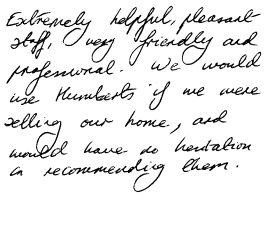 Extremely helpful, pleasant
staff, very friendly and
professional. We would
use Humberts if we were
selling our home, and
would have no hesitation
in recommending them.